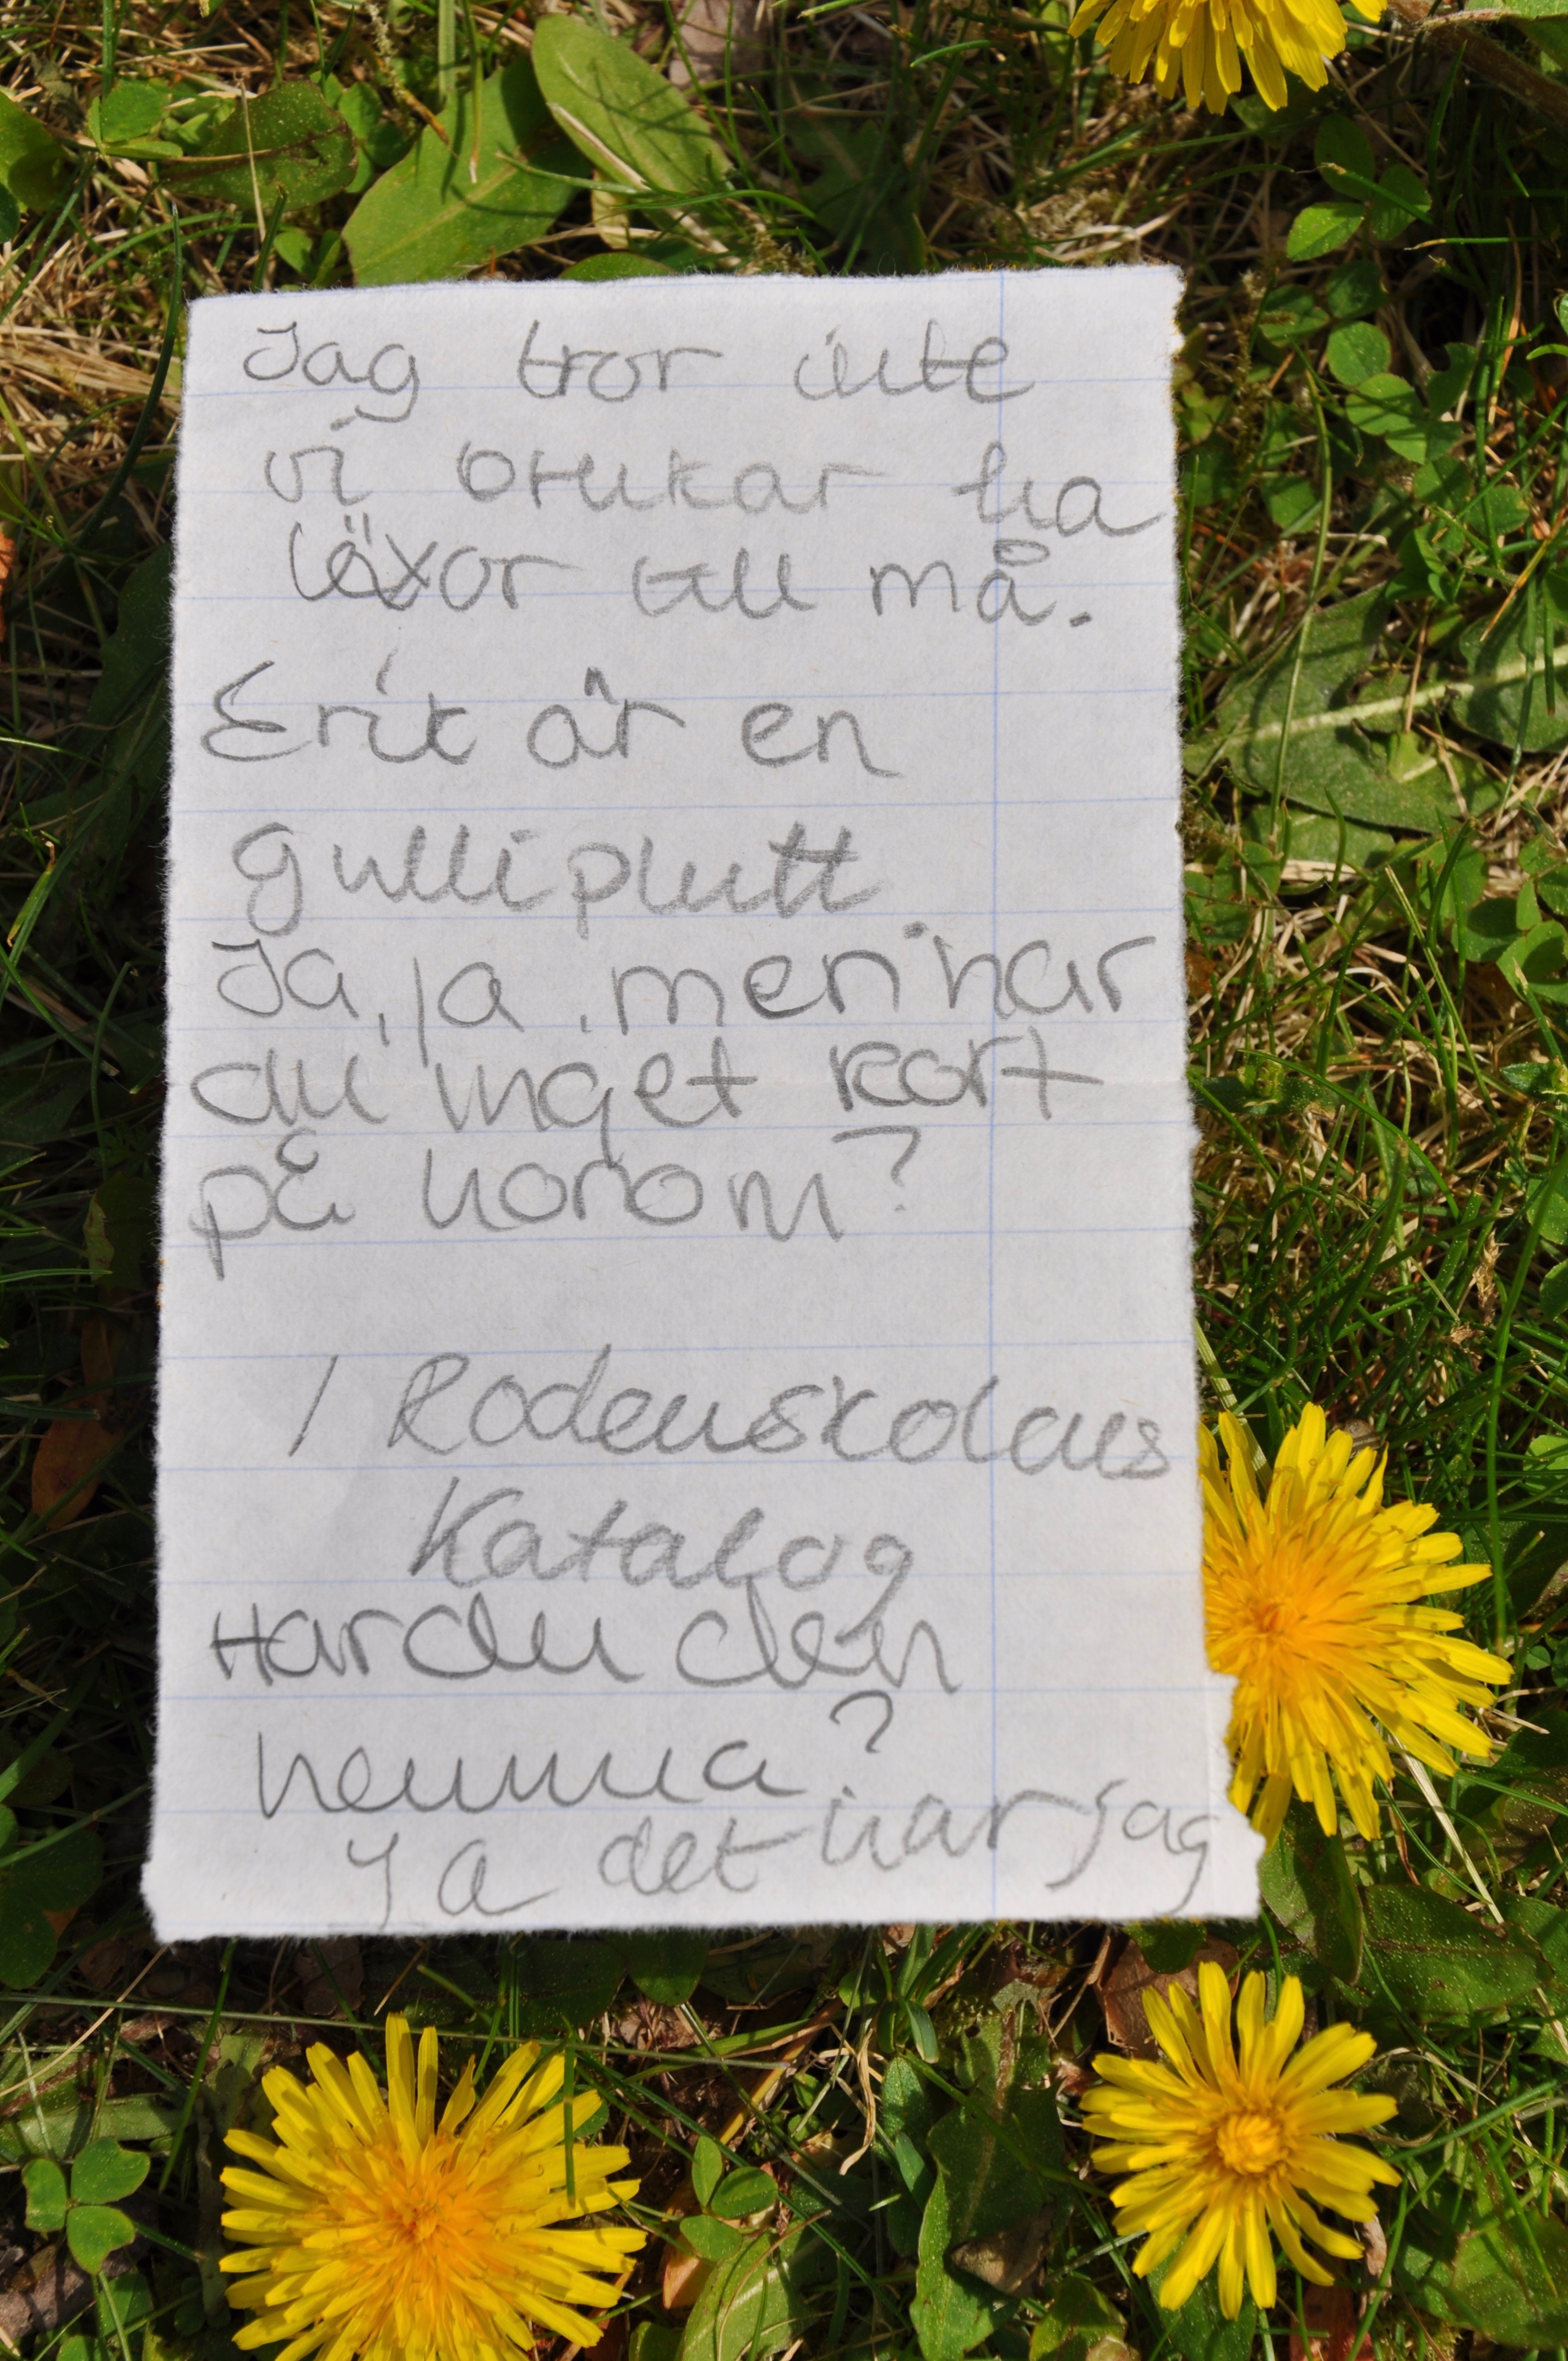 Jag tror inte
vi brukar ha
läxor till må.
Erik är en
gulliplutt
Ja, ja, men har
du inget kort
på honom?
I Rodenskolans
Katalog
Har du den
hemma?
Ja det har jag